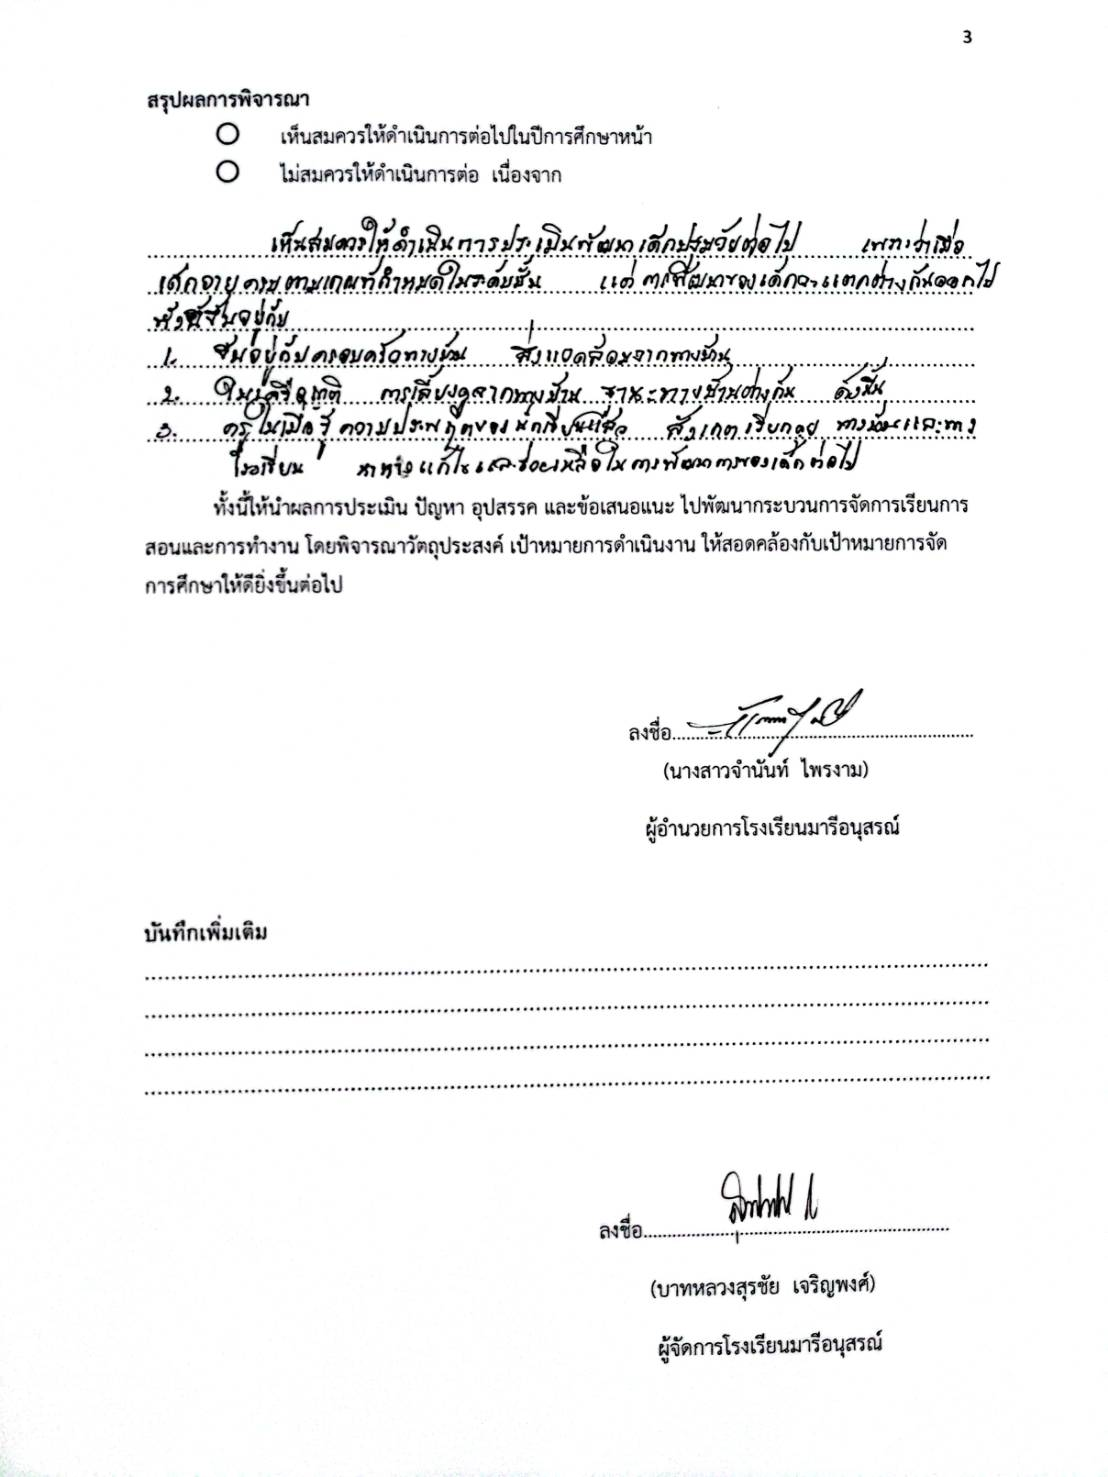 3
สรุปผลการพิจารณา
เห็นสมควรให้ดำเนินการต่อไปในปีการศึกษาหน้า
ไม่สมควรให้ดำเนินการต่อ เนื่องจาก
เห็นสมควรให้ดำเนินการประเมินพัฒนาเด็กปฐมวัยต่อไป เพราะว่าเมื่อ
เด็กอายุครบตามเกณฑ์กำหนดในระดับชั้น แต่ การพัฒนาของเด็กจะแตกต่างกันออกไป
ทั้งนี้ขึ้นอยู่กับ
1. ขึ้นอยู่กับครอบครัวทางบ้าน สิ่งแวดล้อมจากทางบ้าน
2. การเลี้ยงดูจากทางบ้าน ฐานะทางบ้านต่างกัน ดังนั้น
3. ครูในเมื่อรู้ความประพฤติของนักเรียนแล้ว สังเกต ทางบ้านและทาง
โรงเรียน หาทางแก้ไขและช่วยเหลือในการพัฒนาการของเด็กต่อไป
ทั้งนี้ให้นำผลการประเมิน ปัญหา อุปสรรค และข้อเสนอแนะ ไปพัฒนากระบวนการจัดการเรียนการ
สอนและการทำงาน โดยพิจารณาวัตถุประสงค์ เป้าหมายการดำเนินงาน ให้สอดคล้องกับเป้าหมายการจัด
การศึกษาให้ดียิ่งขึ้นต่อไป
ลงชื่อ
(นางสาวจำนันท์ ไพรงาม)
ผู้อำนวยการโรงเรียนมารีอนุสรณ์
บันทึกเพิ่มเติม
ลงชื่อ
(บาทหลวงสุรชัย เจริญพงศ์)
ผู้จัดการโรงเรียนมารีอนุสรณ์